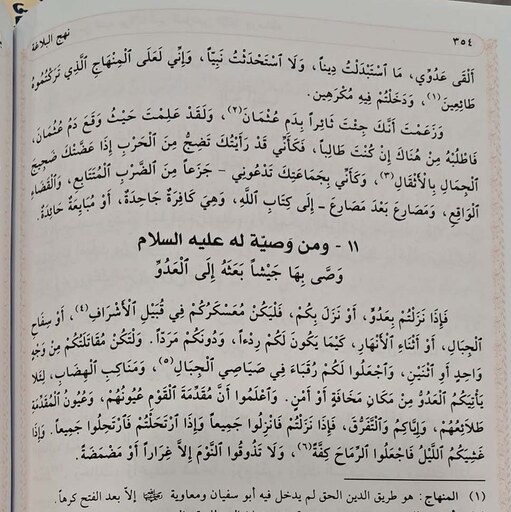 ٣٥٤
نهج البلاغة
أَلْقَى عَدُوِّي، مَا ٱسْتَبْدَلْتُ دِيناً، وَلَا ٱسْتَحْدَثْتُ نَبِيّاً، وَإِنِّي لَعَلَى ٱلْمِنْهَاجِ ٱلَّذِي تَرَكْتُمُوهُ
طَائِعِينَ(١)، وَدَخَلْتُمْ فِيهِ مُكْرَهِين.
وَزَعَمْتَ أَنَّكَ جِئْتَ ثَائِراً بِدَمِ عُثْمَانَ(٢)، وَلَقَدْ عَلِمْتَ حَيْثُ وَقَعَ دَمُ عُثْمَانَ،
فَاطْلُبْهُ مِنْ هُنَاكَ إِنْ كُنْتَ طَالِباً، فَكَأَنِّي قَدْ رَأَيْتُكَ تَضِجُّ مِنَ ٱلْحَرْبِ إِذَا عَضَّتْكَ ضَجِيجَ
ٱلْجِمَالِ بِالْأَثْقَالِ(٣)، وَكَأَنِّي بِجَمَاعَتِكَ تَدْعُونِي - جَزَعاً مِنَ ٱلضَّرْبِ ٱلْمُتَتَابِعِ، وَٱلْقَضَاءِ
ٱلْوَاقِعِ، وَمَصَارِعَ بَعْدَ مَصَارِعَ - إِلَى كِتَابِ ٱللَّهِ، وَهِيَ كَافِرَةٌ جَاحِدَةٌ، أَوْ مُبَايِعَةٌ حَائِدَةٌ.
١١ - ومن وَصيّة له عليه السلام
وَصَّى بِهَا جَيْشاً بَعَثَهُ إِلَى ٱلْعَدُوِّ
فَإِذَا نَزَلْتُمْ بِعَدُوٍّ، أَوْ نَزَلَ بِكُمْ، فَلْيَكُنْ مُعَسْكَرُكُمْ فِي قُبِيلِ ٱلْأَشْرَافِ(٤)، أَوْ سِفَاحِ
ٱلْجِبَالِ، أَوْ أَثْنَاءِ ٱلْأَنْهَارِ، كَيْمَا يَكُونَ لَكُمْ رِدْءاً، وَدُونَكُمْ مَرَدّاً. وَلْتَكُنْ مُقَاتَلَتُكُمْ مِنْ وَجْهٍ
وَاحِدٍ أَوِ ٱثْنَيْنِ، وَٱجْعَلُوا لَكُمْ رُقَبَاءَ فِي صَيَاصِي ٱلْجِبَالِ(٥)، وَمَنَاكِبِ ٱلْهِضَابِ، لِئَلا
يَأْتِيَكُمُ ٱلْعَدُوُّ مِنْ مَكَانِ مَخَافَةٍ أَوْ أَمْنٍ. وَٱعْلَمُوا أَنَّ مُقَدِّمَةَ ٱلْقَوْمِ عُيُونُهُمْ، وَعُيُونَ ٱلْمُقَدِّمَةِ
طَلَائِعُهُمْ، وَإِيَّاكُمْ وَٱلتَّفَرُّقَ، فَإِذَا نَزَلْتُمْ فَانْزِلُوا جَمِيعاً وَإِذَا ٱرْتَحَلْتُمْ فَٱرْتَحِلُوا جَمِيعاً. وَإِذَا
غَشِيَكُمُ ٱللَّيْلُ فَاجْعَلُوا ٱلرِّمَاحَ كِفَّةً(٦)، وَلَا تَذُوقُوا ٱلنَّوْمَ إِلاَّ غِرَاراً أَوْ مَضْمَضَةً.
(١) المنهاج: هو طريق الدين الحق لم يدخل فيه أبو سفيان ومعاوية إلاّ بعد الفتح كرهاً.